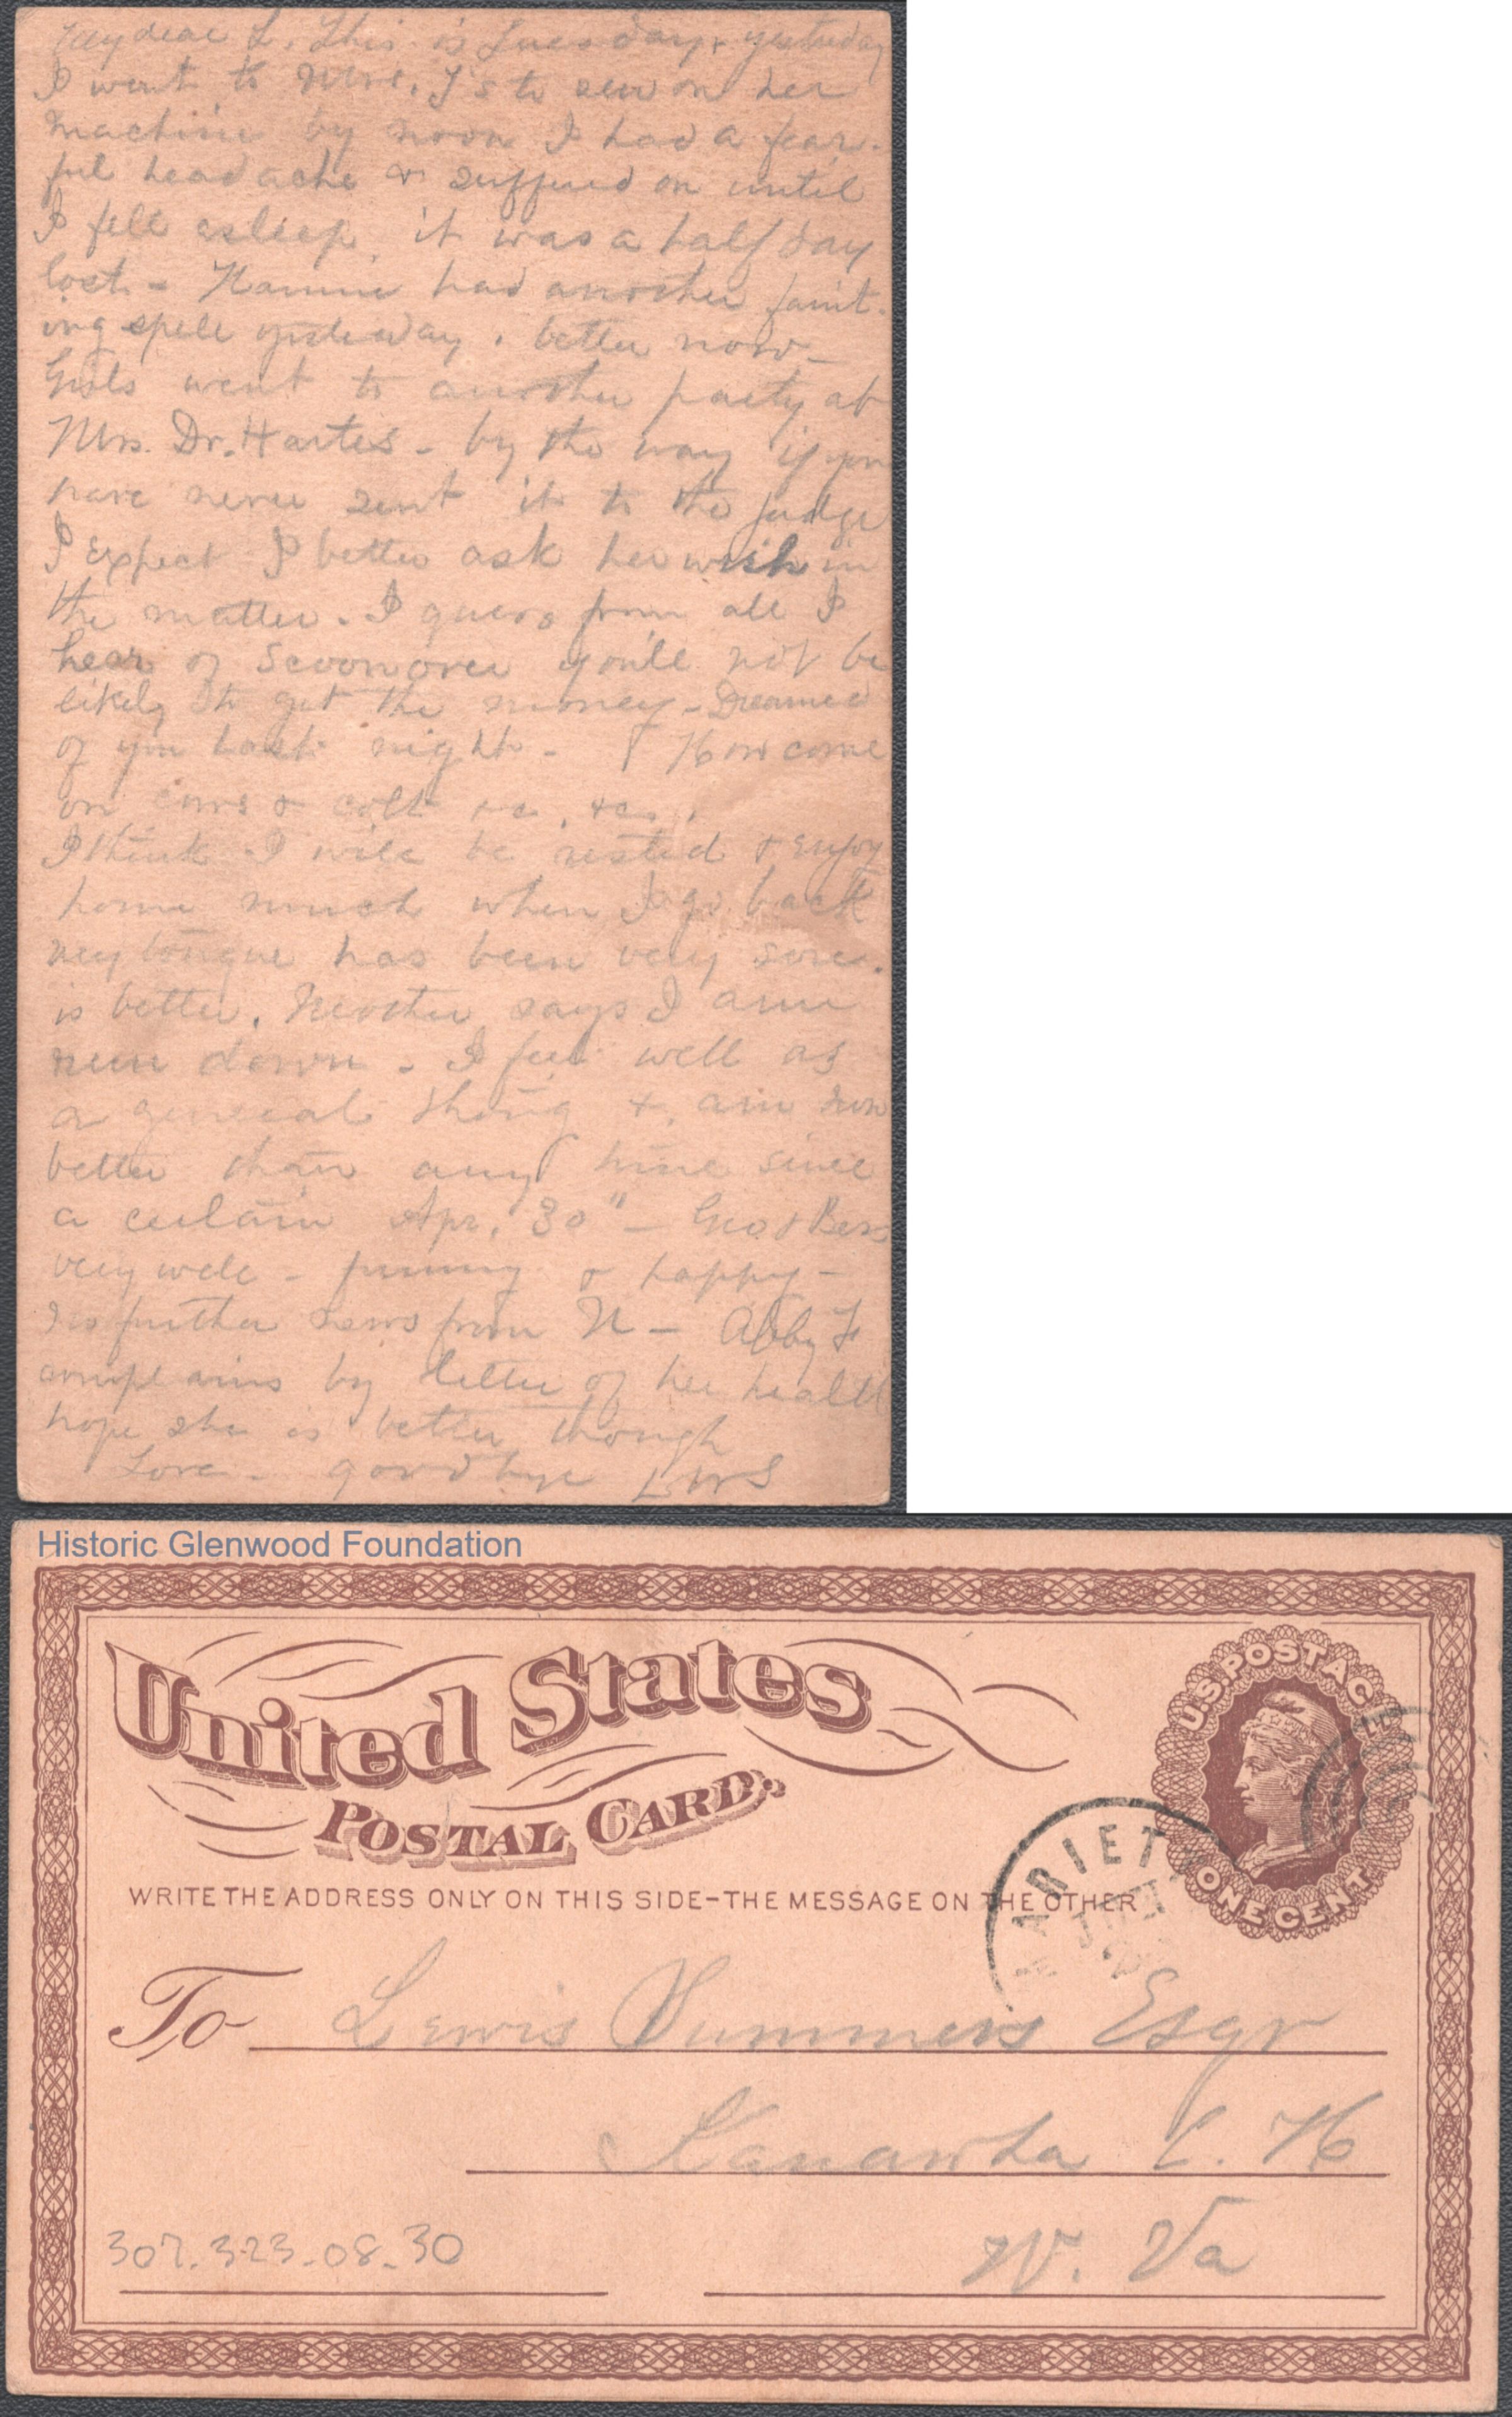 My dear L. This is Tuesday & yesterday
I went to Mrs. J's to sew on her
machine by noon I had a fear-
ful headache & suffered on until
I fell asleep, it was a half day
lost - Nannie had another faint-
ing spell yesterday. better now -
Girls went to another party at
Mrs. Dr. Hartes - by the way if you
have never sent it to the judge
I expect I better ask her wish in
the matter. I guess from all I
hear of Scoonover you'll not be
likely to get the money - Dreamed
of you last night - How come
on cows & colt &c. &c.
I think I will be rested & enjoy
home much when I go back
my tongue has been very sore.
is better. Mother says I am
run down - I feel well as
a general thing & am now
better than any time since
a certain Apr. 30" - Geo. & Bess
very well - funny & happy -
No further news from N - Abby F
complains by letter of her health
hope she is better though
Love - goodbye LWS
Historic Glenwood Foundation
United States
POSTAL CARD.
U.S. POSTAGE
ONE CENT
MARIETT
WRITE THE ADDRESS ONLY ON THIS SIDE-THE MESSAGE ON THE OTHER
To Lewis Summers Esqr
Kanawha C. H
W. Va
307.323-08.30